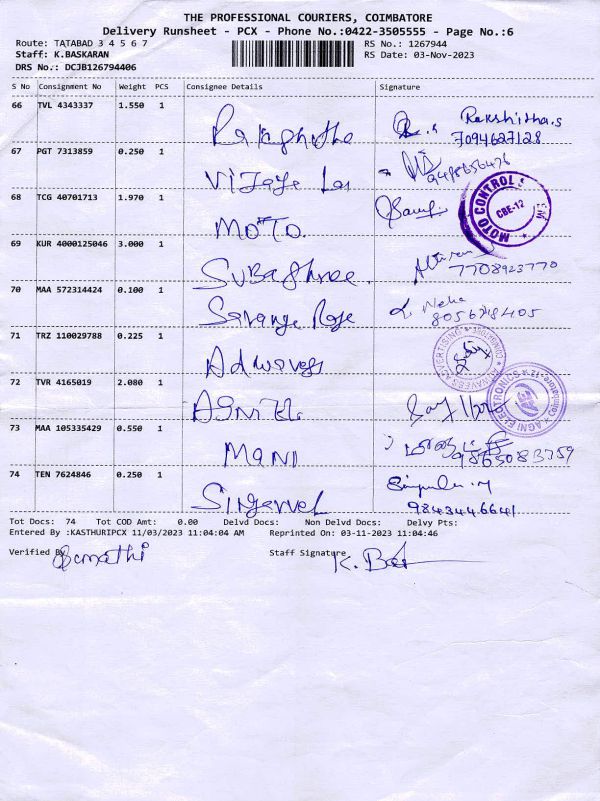 THE PROFESSIONAL COURIERS, COIMBATORE
Delivery Runsheet - PCX - Phone No.:0422-3505555 - Page No.:6
Route: TATABAD 3 4 5 6 7 RS No.: 1267944
Staff: K.BASKARAN RS Date: 03-Nov-2023
DRS No.: DCJB126794406
S No Consignment No Weight PCS Consignee Details Signature
66 TVL 4343337 1.550 1 Rakshitha.s
7094627128
67 PGT 7313859 0.250 1 Vijaya
9498656476
68 TCG 40701713 1.970 1 MOTO
MOTO CONTROL
CBE-12
69 KUR 4000125046 3.000 1 Subashree
7708923770
70 MAA 572314424 0.100 1 Neha
8056718405
71 TRZ 110029788 0.225 1 Adwaves
ADWAVES ADVERTISING
72 TVR 4165019 2.080 1
AGNI ELECTRONICS
73 MAA 105335429 0.550 1 MANI
9865083759
74 TEN 7624846 0.250 1 Singarvel
9843446641
Tot Docs: 74 Tot COD Amt: 0.00 Delvd Docs: Non Delvd Docs: Delvy Pts:
Entered By :KASTHURIPCX 11/03/2023 11:04:04 AM Reprinted On: 03-11-2023 11:04:46
Verified By Staff Signature K. Bas